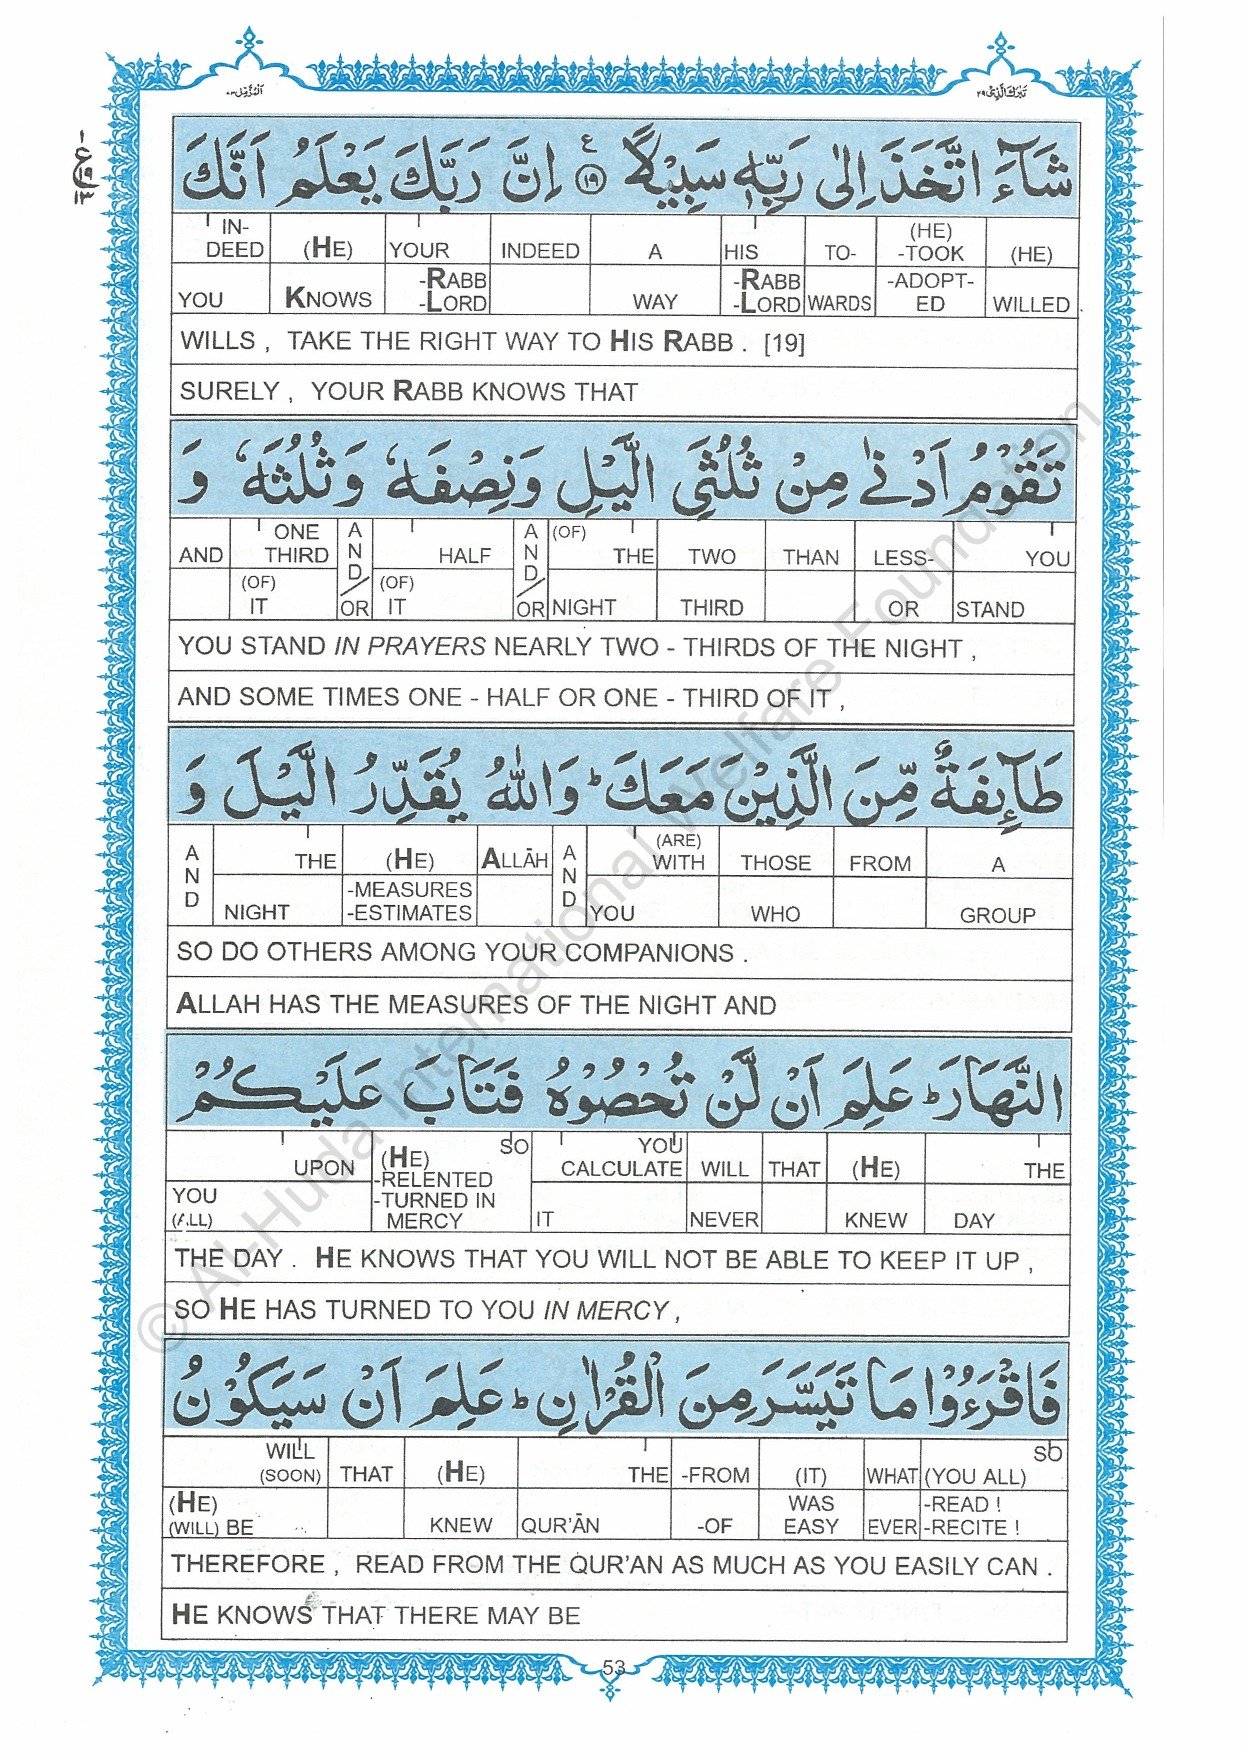 المزمل ٧٣
تبرك الذی ٢٩
شَآءَ اتَّخَذَ اِلٰى رَبِّهٖ سَبِيْلًا ﴿١٩﴾ ع اِنَّ رَبَّكَ يَعْلَمُ اَنَّكَ
IN- (HE) YOUR INDEED A HIS TO- (HE) (HE)
DEED -TOOK
YOU KNOWS -RABB WAY -RABB WARDS -ADOPT- WILLED
-LORD -LORD ED
WILLS , TAKE THE RIGHT WAY TO HIS RABB . [19]
SURELY , YOUR RABB KNOWS THAT
تَقُوْمُ اَدْنٰى مِنْ ثُلُثَىِ الَّيْلِ وَنِصْفَهٗ وَثُلُثَهٗ وَ
AND ONE THIRD AND/OR HALF AND/OR (OF) THE TWO THAN LESS- YOU
(OF) IT (OF) IT NIGHT THIRD OR STAND
YOU STAND IN PRAYERS NEARLY TWO - THIRDS OF THE NIGHT ,
AND SOME TIMES ONE - HALF OR ONE - THIRD OF IT ,
طَآئِفَةٌ مِّنَ الَّذِيْنَ مَعَكَ ؕ وَاللّٰهُ يُقَدِّرُ الَّيْلَ وَ
AND THE (HE) ALLĀH AND (ARE) WITH THOSE FROM A
NIGHT -MEASURES YOU WHO GROUP
-ESTIMATES
SO DO OTHERS AMONG YOUR COMPANIONS .
ALLAH HAS THE MEASURES OF THE NIGHT AND
النَّهَارَ ؕ عَلِمَ اَنْ لَّنْ تُحْصُوْهُ فَتَابَ عَلَيْكُمْ
UPON (HE) SO YOU CALCULATE WILL THAT (HE) THE
YOU -RELENTED IT NEVER KNEW DAY
(ALL) -TURNED IN MERCY
THE DAY . HE KNOWS THAT YOU WILL NOT BE ABLE TO KEEP IT UP ,
SO HE HAS TURNED TO YOU IN MERCY ,
فَاقْرَءُوْا مَا تَيَسَّرَ مِنَ الْقُرْاٰنِ ؕ عَلِمَ اَنْ سَيَكُوْنُ
WILL (SOON) THAT (HE) THE -FROM (IT) WHAT SO (YOU ALL)
(HE) KNEW QUR'ĀN -OF WAS EVER -READ !
(WILL) BE EASY -RECITE !
THEREFORE , READ FROM THE QUR'AN AS MUCH AS YOU EASILY CAN .
HE KNOWS THAT THERE MAY BE
53
© Al-Huda International Welfare Foundation